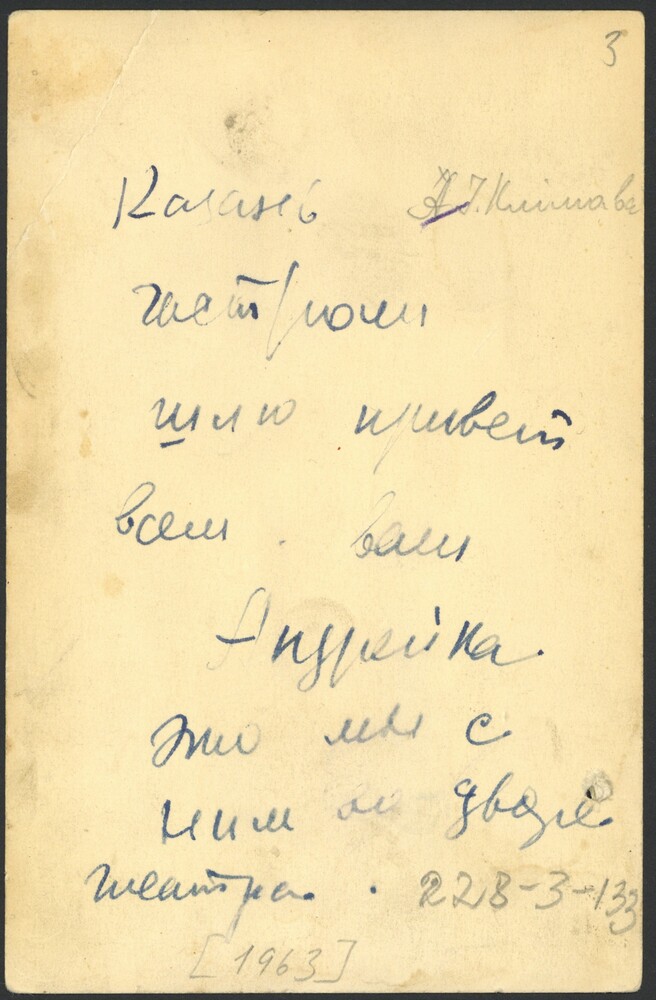 3
Казань
А.Г. Климова
гастроли
шлю привет
вам. ваш
Андрейка.
это мы с
ним во дворе
театра.
228-3-133
[1963]